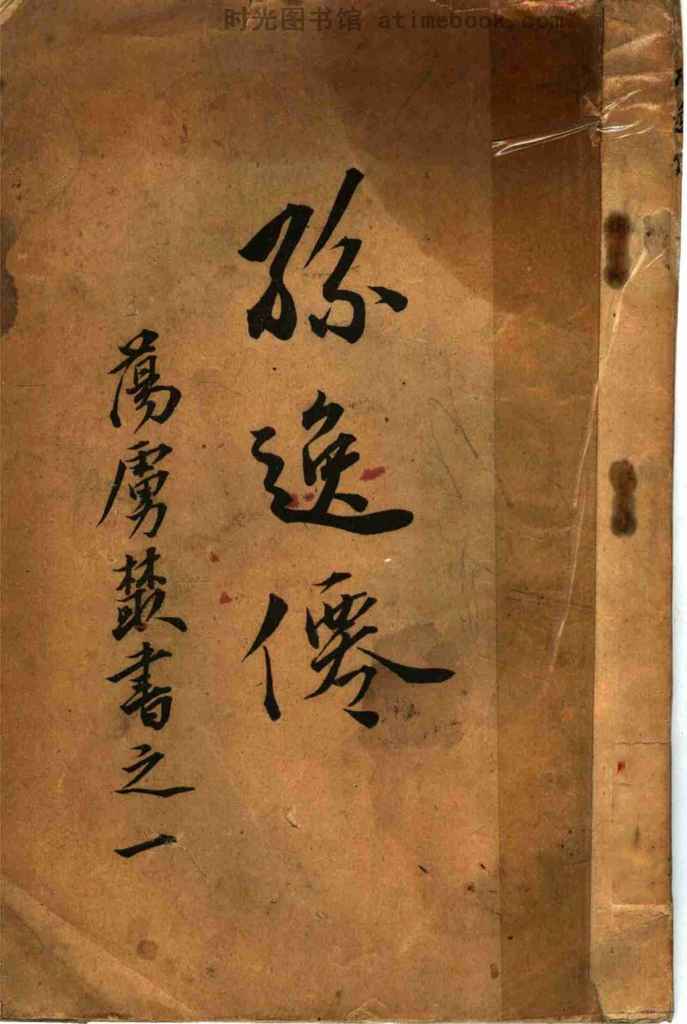 时光图书馆 atimebook.com
孫逸僊
蕩虜叢書之一